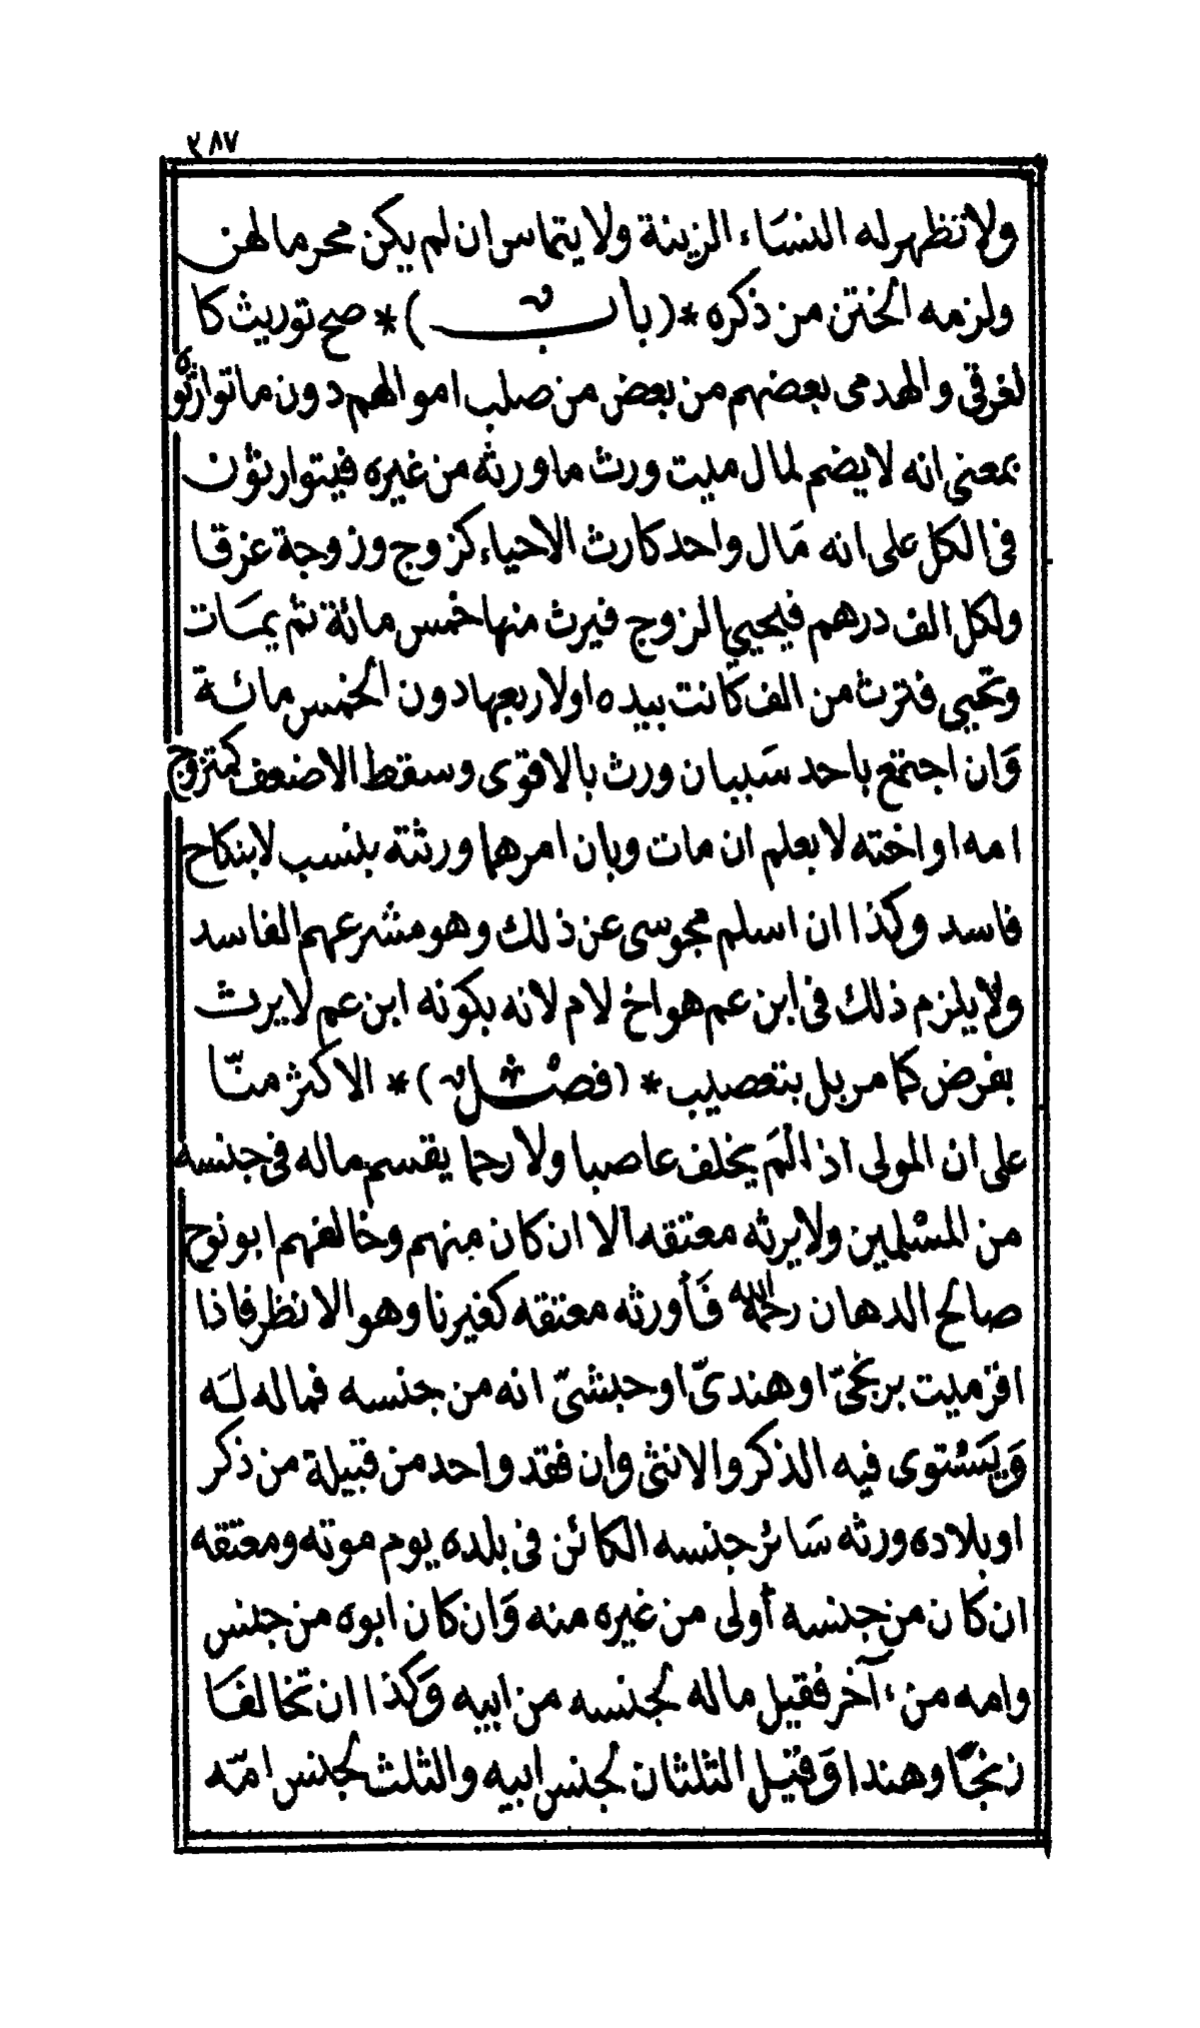 ٣٨٧
ولا تظهر له النسَاء الزينة ولا يتماس ان لم يكن محرما لهن
ولزمه الختن من ذكره *(باب)* صح توريث كا
لغرقى والهدمى بعضهم من بعض من صلب اموالهم دون ما توارثوه
بمعنى انه لا يضم لمال ميت ورث ما ورثه من غيره فيتوارثون
فى الكل على انه مَال واحد كارث الاحياء كزوج وزوجة غرقا
ولكل الف درهم فيحيى الزوج فيرث منها خمس مائة ثم يمَات
وتحيى فترث من الف كَانت بيده اولا ربعها دون الخمس مائة
وَان اجتمع باحد سَببان ورث بالاقوى وسقط الاضعف كمتزوج
امه او اخته لا بعلم ان مات وبان امرهما ورثته بنسب لا بنكاح
فاسد وكذا ان اسلم مجوسى عن ذلك وهو مشرعهم الفاسد
ولا يلزم ذلك فى ابن عم هو اخ لام لانه بكونه ابن عم لا يرث
بفرض كما مر بل بتعصيب * (فصْل) * الاكثر منّا
على ان المولى اذا لَم يخلف عاصبا ولا رحما يقسم ماله فى جنسه
من المسْلمين ولا يرثه معتقه الا ان كان منهم وخالفهم ابو نوح
صالح الدهان رحمه الله فَأورثه معتقه كغيرنا وهو الانظر فاذا
اقر ميت بربخىّ او هندىّ او حبشىّ انه من جنسه فماله لَه
وَيَسْتوى فيه الذكر والانثى وان فقد واحد من قبيلة من ذكر
او بلاده ورثه سَائر جنسه الكائن فى بلده يوم موته ومعتقه
ان كان من جنسه أولى من غيره منه وَان كان ابوه من جنس
وامه من ءآخر فقيل ماله لجنسه من ابيه وَكذا ان تخالفَا
زنجًا وهندا وَقيل الثلثان لجنس ابيه والثلث لجنس امّه